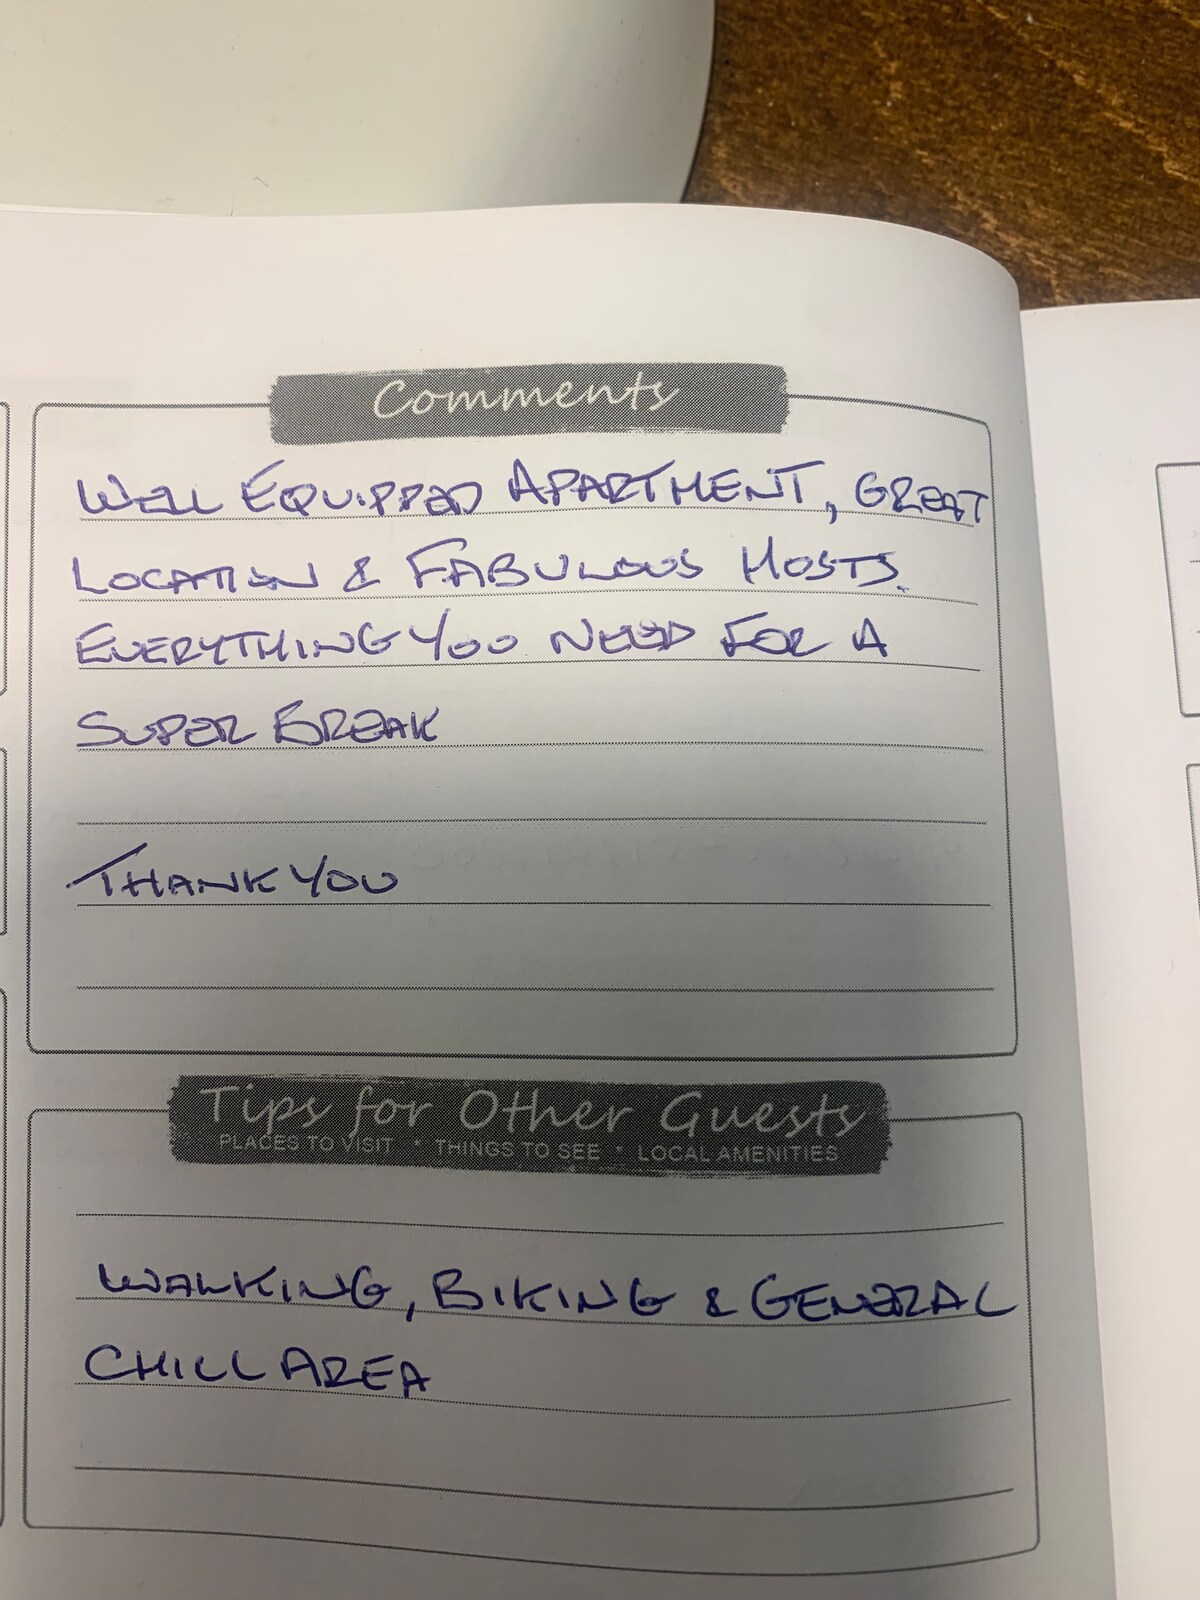 Comments
WELL EQUIPPED APARTMENT, GREAT
LOCATION & FABULOUS HOSTS.
EVERYTHING YOU NEED FOR A
SUPER BREAK
THANK YOU
Tips for Other Guests
PLACES TO VISIT * THINGS TO SEE * LOCAL AMENITIES
WALKING, BIKING & GENERAL
CHILL AREA